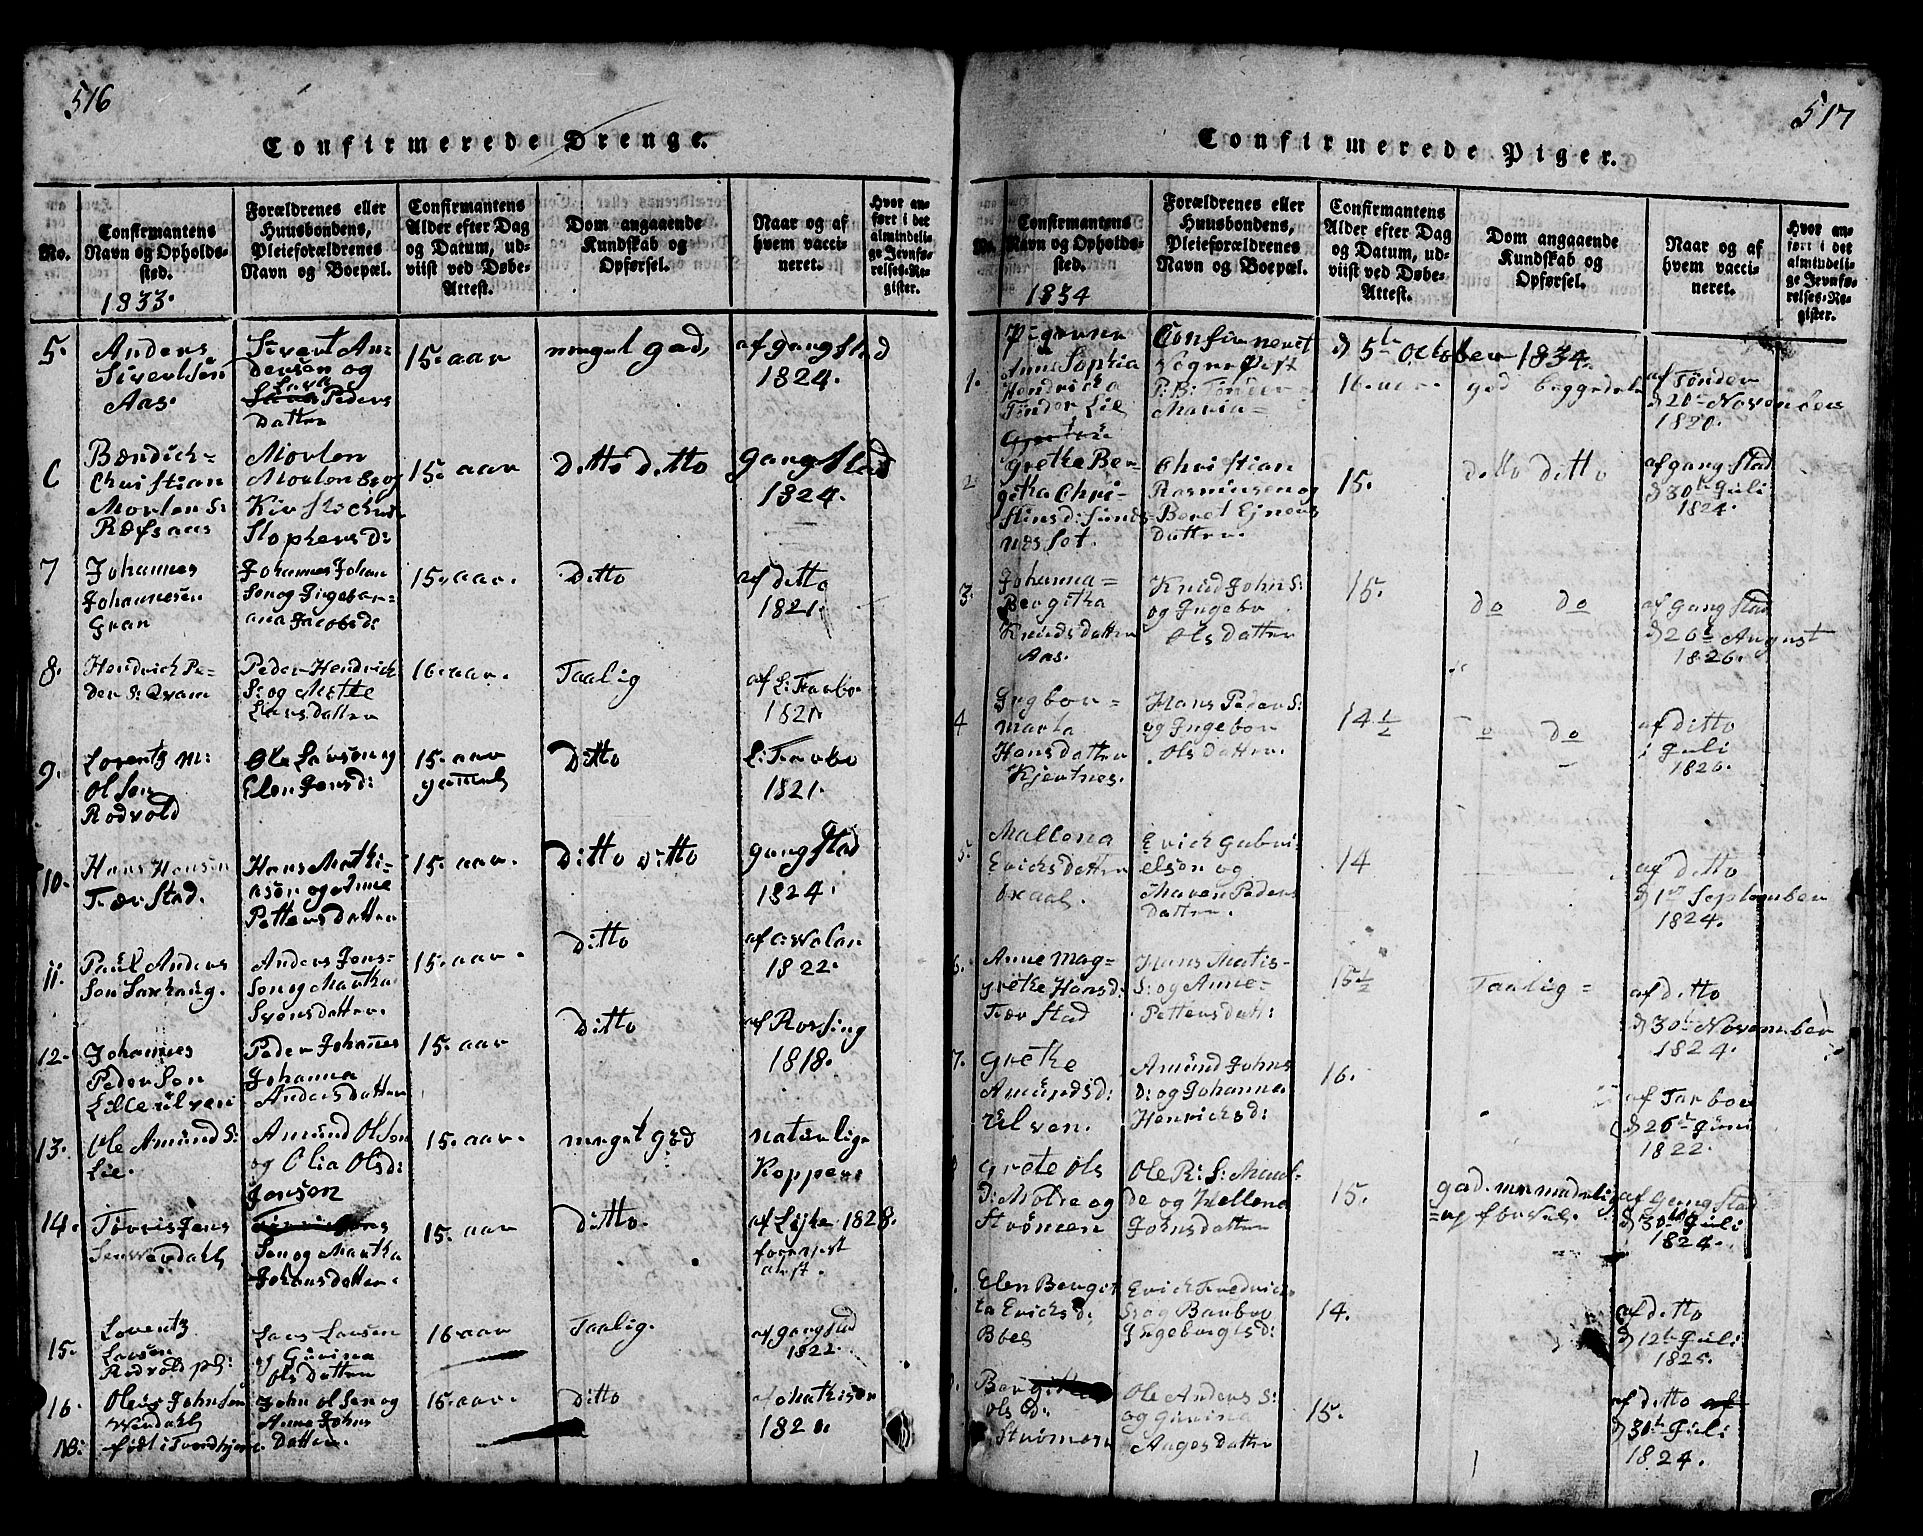 516
Confirmerede Drenge.
No.
Confirmantens
Navn og Opholds-
sted.
1833.
Forældrenes eller
Huusbondens,
Pleieforældrenes
Navn og Boepæl.
Confirmantens
Alder efter Dag
og Datum, ud-
viist ved Døbe-
Attest.
Dom angaaende
Kundskab og
Opførsel.
Naar og af
hvem vacci-
neret.
Hvor an-
ført i det
almindeli-
ge Jevnfø-
relses-Re-
gister.
5.
Anders
Sivertsen
Aas.
Sivert An-
dersen og
Peders
Datter
15. aar
meget god,
af gangstad
1824.
Bændich=
Christian
Morten S:
Ræfsaas
Morten
Mortens og
Stophers D:
15. aar
Ditto Ditto
gangstad
1824.
7
Johannes
Johannesen
Gran
Johannes Johan
Son og Ingebor-
ana Jacobs D:
15. aar.
Ditto
af ditto
1821.
8.
Hendrich Pe-
der S: Qvam
Peder Hendrich
S: og Mette
Lars datter
16. aar.
Taalig
af L: Farbo
1821.
9.
Lorentz M:
Olsen
Rodvold
Ole Larsen og
Elen Jens d:
15. aar
gammel
Ditto
L: Farbo
1821.
10.
Hans Hansen
Tærstad.
Hans Mathi-
asen og Anne
Petters datter
15. aar.
Ditto ditto
gangstad
1824.
11.
Paul Anders
Son Saxhaug.
Anders Jens-
Son og Martha
Svens datter.
15. aar.
ditto
1822.
12.
Johannes
Peder Son
Lilleulven
Peder Johannes
Johanna
Anders datter
15. aar
Ditto
af Rossing
1818.
13.
Ole Amund S:
Lie.
Amund Olsen
og Olia Ols d:
15. aar.
meget god
naturlige
Kopper
14.
Jens
Son Werdahl
Jensen
Son og Martha
Johans datter.
15. aar
ditto.
1828.
15.
Lorentz
Larsen
Rodvold pl:
Lars Larsen
og Gurina
Ols datter
16 aar
Taalig.
af gangstad
1822.
16.
Oleus Johnsen
Werdahl
NB: født i Trondhjem.
John Olsen og
Anne Johns
Datter.
15. aar.
ditto
af Mathison
517
Confirmerede Piger.
No.
Confirmantens
Navn og Opholds-
sted.
1834
Forældrenes eller
Huusbondens,
Pleieforældrenes
Navn og Boepæl.
Confirmantens
Alder efter Dag
og Datum, ud-
viist ved Døbe-
Attest.
Dom angaaende
Kundskab og
Opførsel.
Naar og af
hvem vacci-
neret.
Hvor an-
ført i det
almindeli-
ge Jevnfø-
relses-Re-
gister.
Confirmeret
d 5te October 1834.
1.
Anne Sophia
Hendricka
Tønder Lie
P: B: Tønder
Maria=
16. aar.
god beggedele
af Tønder
d 20de November
1820.
2
Grethe Ber-
githa Chri-
stins d: Sund-
næs fet.
Christian
Rasmussen og
Beret Ejners
datter.
15.
ditto ditto
af gangstad
d 30te Juli
1824.
3.
Johanna=
Bergitha
Knuds datter
Aas.
Knud John S:
og Ingebor
Ols datter
15.
do do
af gangstad
d 26te August
1826.
4
Ingbor=
Marta
Hans datter
Kjertnes.
Hans Peder S:
og Ingebor
Ols datter.
14 1/2
do do
af ditto
i Juli
1826.
5.
Mallena
Erichs datter
Oxaal.
Erich Gabri-
elsen og
Maren Peders
datter.
14
af ditto
d 1ste September
1824.
6.
Anne Mag=
grethe Hans d:
Tærstad
Hans Matis-
S: og Anne=
Petters datt:
15 1/2
Taalig=
af ditto
d 30te November
1824.
7.
Grethe
Amunds d:
Elven.
Amund Johns
og Johanna
Henrichs d:
16.
af Farbo
d 26te Juni
1822.
Grete Ols
D: Molse og
Strømen
Ole R: S: Maul-
de og Hellena
Johns datter
15.
god
af Gangstad
d 30te Juli
1824.
Elen Bergit
ta Erichs d:
Boel
Erich Fredrich
S: og Barbro
Ingeborgs d:
14.
af ditto
d 12te Juli
1825.
Ber
Ols d:
Strømen
Ole Anders S:
og Gurina
Aages datter
15.
af ditto
d 30te Juli
1824.